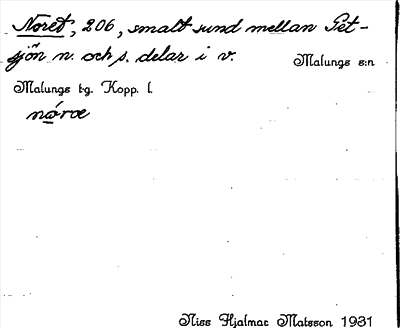 Noret, 206, smalt sund mellan Get-
sjön n. och s. delar i v.
Malungs s:n
Malungs tg. Kopp. l.
nórœ
Niss Hjalmar Matsson 1931